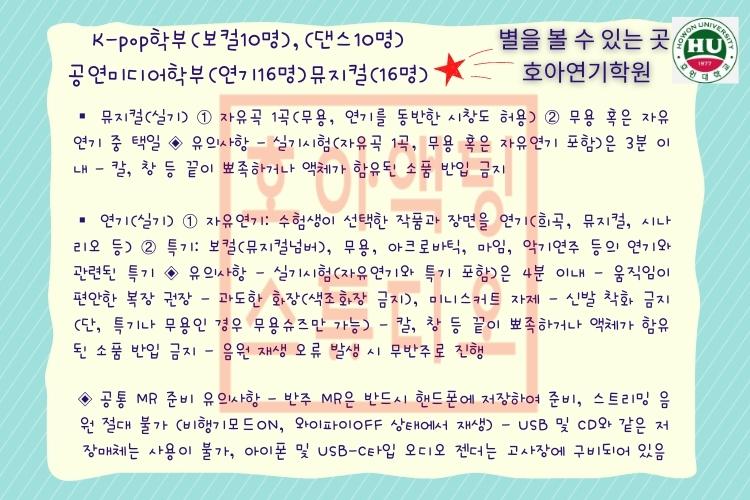 K-pop학부(보컬10명), (댄스10명)
공연미디어학부(연기16명)뮤지컬(16명)
별을 볼 수 있는 곳
호아연기학원
HOWON UNIVERSITY
HU
1977
호원대학교
▪ 뮤지컬(실기) ① 자유곡 1곡(무용, 연기를 동반한 시창도 허용) ② 무용 혹은 자유
연기 중 택일 ◈ 유의사항 - 실기시험(자유곡 1곡, 무용 혹은 자유연기 포함)은 3분 이
내 - 칼, 창 등 끝이 뾰족하거나 액체가 함유된 소품 반입 금지
▪ 연기(실기) ① 자유연기: 수험생이 선택한 작품과 장면을 연기(희곡, 뮤지컬, 시나
리오 등) ② 특기: 보컬(뮤지컬넘버), 무용, 아크로바틱, 마임, 악기연주 등의 연기와
관련된 특기 ◈ 유의사항 - 실기시험(자유연기와 특기 포함)은 4분 이내 - 움직임이
편안한 복장 권장 - 과도한 화장(색조화장 금지), 미니스커트 자제 - 신발 착화 금지
(단, 특기나 무용인 경우 무용슈즈만 가능) - 칼, 창 등 끝이 뾰족하거나 액체가 함유
된 소품 반입 금지 - 음원 재생 오류 발생 시 무반주로 진행
◈ 공통 MR 준비 유의사항 - 반주 MR은 반드시 핸드폰에 저장하여 준비, 스트리밍 음
원 절대 불가 (비행기모드ON, 와이파이OFF 상태에서 재생) - USB 및 CD와 같은 저
장매체는 사용이 불가, 아이폰 및 USB-C타입 오디오 젠더는 고사장에 구비되어 있음
호아액팅
스튜디오